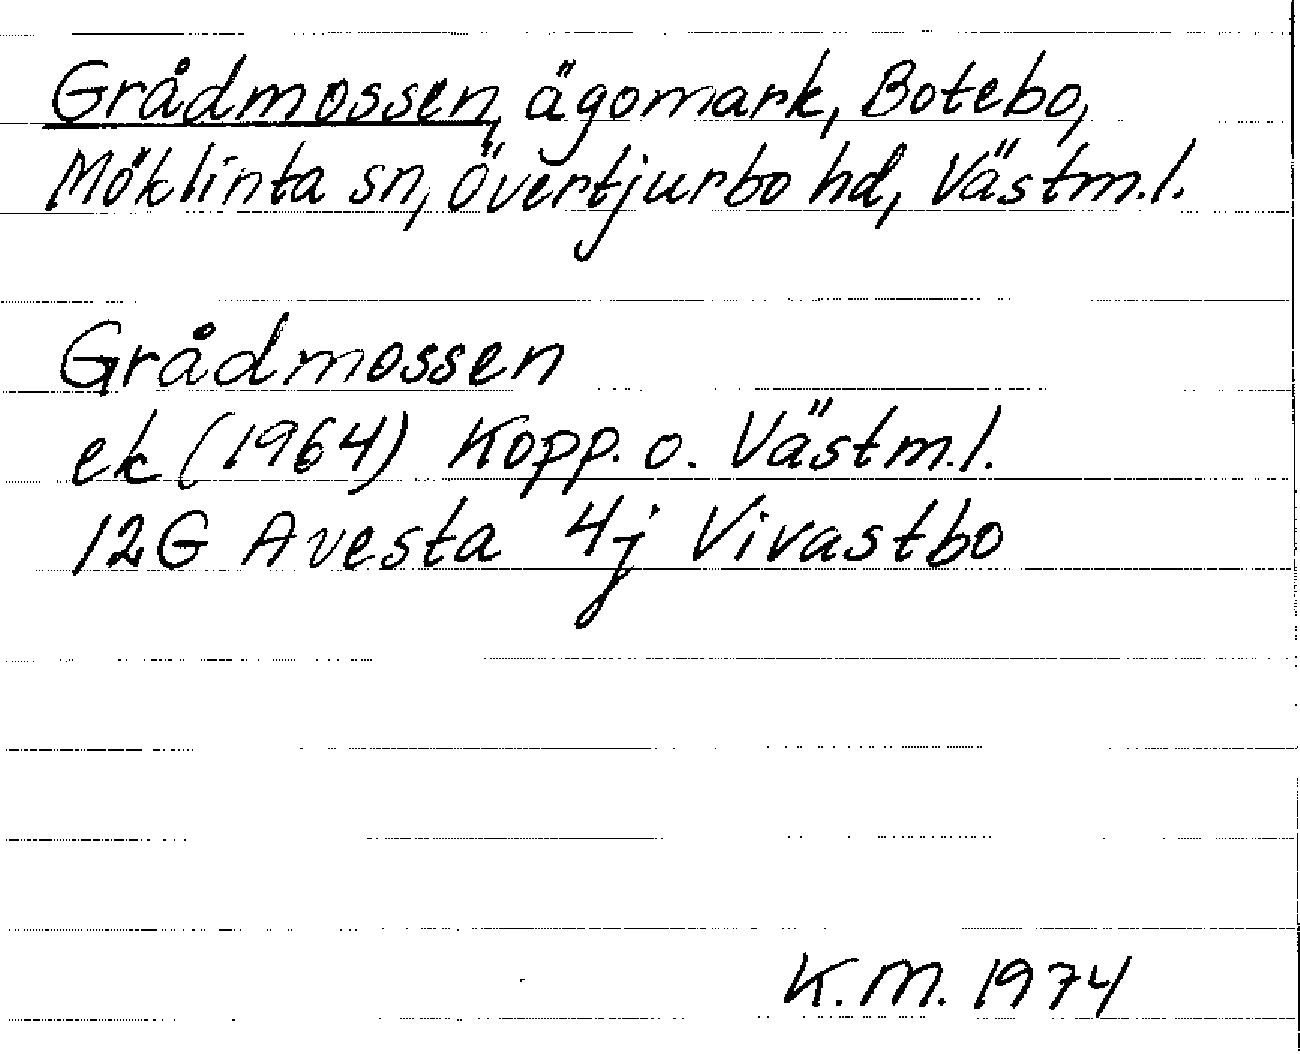 Grådmossen, ägomark, Botebo,
Möklinta sn, Övertjurbo hd, Västm.l.
Grådmossen
ek (1964) Kopp. o. Västm.l.
12G Avesta 4j Vivastbo
K.M. 1974